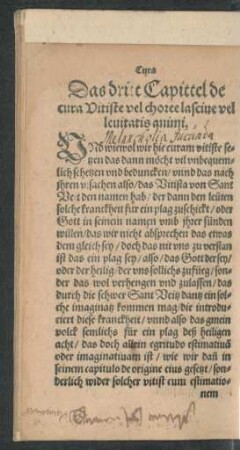 Cura
Das dritt Capittel de
cura Vitiste vel choree lascive vel
levitatis animi.
VNd wiewol wir hie curam vitiste se-
tzen das dann möcht vil vnbequem-
lich schetzen vnd beduncken / vnnd das nach
jhren vrsachen also / das Vitista von Sant
Veit den namen hab / der dann den leüten
solche kranckheit für ein plag zuschickt / oder
Gott in seinem namen vmb jhrer sünden
willen / das wir nicht absprechen das etwas
dem gleich sey / doch das nit vns zu verstan
ist das ein plag sey / also / das Gott der sey /
oder der heilig / der vns sollichs zufüeg / son-
der das wol verhengen vnd zulassen / das
durch die schwer Sant Veit dantz ein sol-
che imaginatz kommen mag / die introdu-
ciert diese kranckheit / vnnd also das gmein
volck semlichs für ein plag deß heiligen
acht / das doch allein egritudo estimatiua
oder imaginatiuam ist / wie wir dañ in
seinem capitulo de origine eius gesetzt / son-
derlich wider solcher vitist eum estimatio-
nem